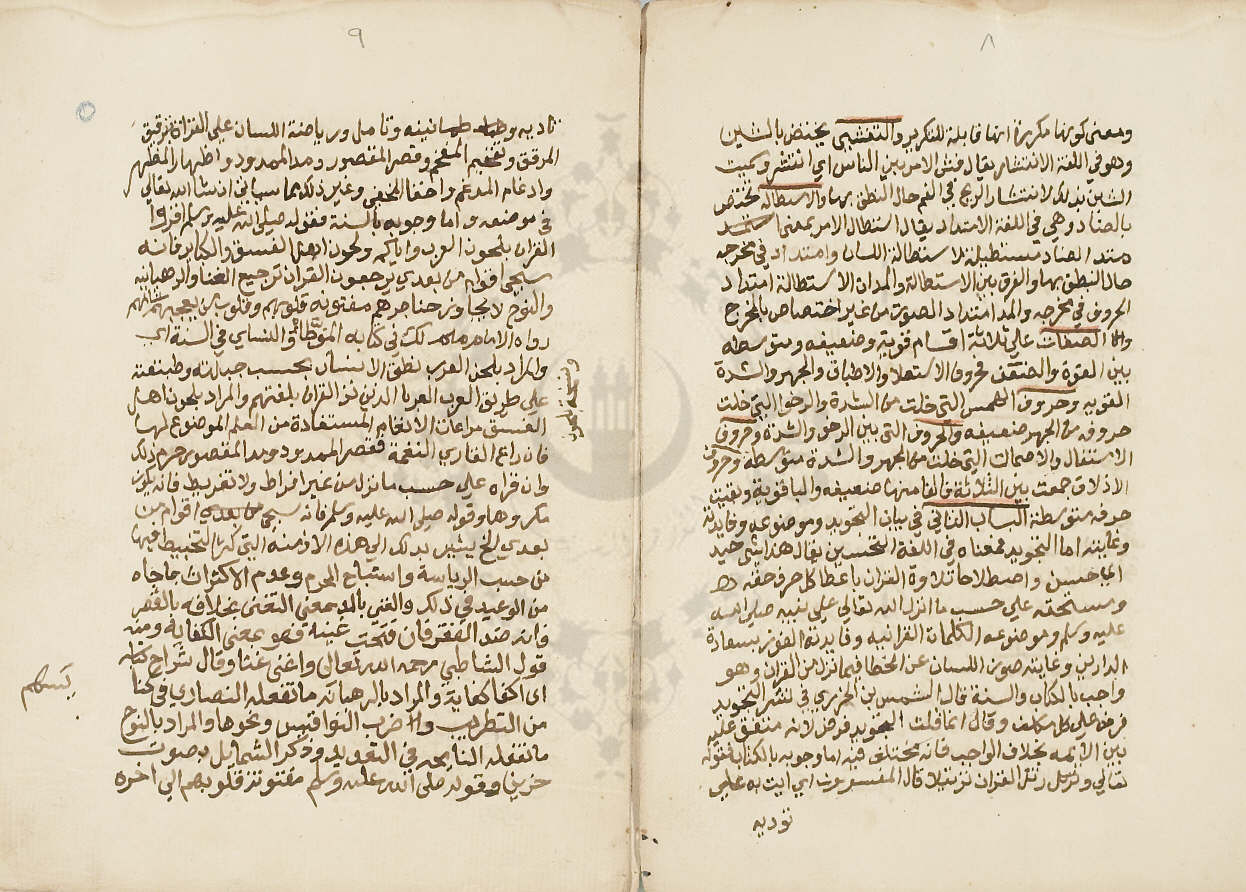 ٨
ومعنى كونها مكررة انها قابلة للتكرير والتفشي يختص بالشين
وهو في اللغة الانتشار يقال فش الامر بين الناس اي انتشر وسميت
الشين بذلك لانتشار الريح في الفم حال النطق بها والاستطالة تختص
بالضاد وهي في اللغة الامتداد يقال استطال الامر بمعنى استمد
الضاد مستطيلة لاستطالة اللسان وامتداد في مخرجه
حال النطق بها والفرق بين الاستطالة والمد ان الاستطالة امتداد
الحروف في مخرجه والمد امتداد الصوت من غير اختصاص بالمخرج
الصفات على ثلاثة اقسام قوية وضعيفه ومتوسطه
بين القوة والضعف فحروف الاستعلا والاطباق والجهر والشدة
القويه وحروف الهمس التي خلت من الشدة والرخوا التي خلت
حروفه من الجهر ضعيفه والحروف التي بين الرخو والشدة وحروف
الاستفال والاصمات التي خلت من الجهر والشدة متوسطه وحروف
الاذلاق جمعت بين الثلاثة فالفا منها ضعيفه والبا قوية وبقيت
حرفه متوسطة الباب الثاني في بيان التجويد وموضوعه وفايدته
وغايته اما التجويد فمعناه في اللغة التحسين يقال هذا شي جيد
اي حسن واصطلاحا تلاوة القران باعطا كل حرف حقه
ومستحقه علي حسب ما انزل الله تعالي علي نبيه صلى الله
عليه وسلم وموضوعه الكلمات القرانيه وفايدته الفوز بسعادة
الدارين وغايته صون اللسان عن الخطا فيما نزل من القران وهو
واجب بالكتاب والسنة قال الشمس بن الجزري في نشر التجويد
فرض على كل مكلف وقال انما قلت التجويد فرض لانه متفق عليه
بين الايمه بخلاف الواجب فانه مختلف فيه اما وجوبه بالكتاب فقوله
تعالي ورتل القران ترتيلا قال المفسرون اي ايت به علي
تودية
٩
تاديه وطمانينه وتامل ورياضة اللسان علي القران بترقيق
المرقق وتفخيم المفخم وقصر المقصور ومد الممدود واظهار المظهر
وادغام المدغم واخفا المخفي وغير ذلك مما سياتي ان شا الله تعالي
في موضعه واما وجوبه بالسنة فقوله صلى الله عليه وسلم اقروا
القران بلحون العرب واياكم ولحون اهل الفسق والكباير فانه
سيجي اقوام من بعدي يرجعون القران ترجيع الغنا والرهبانية
والنوح لا يجاوز حناجرهم مفتونه قلوبهم وقلوب من يعجبهم شانهم
رواه الامام مالك في كتابه الموطا والنساي في السنة
والمراد بلحن العرب نطق الانسان بحسب جبلته وطبيعته
علي طريق العرب العربا الذين نزل القران بلغتهم والمراد بلحون اهل
الفسق مراعات الانغام المستفادة من العلم الموضوع لها
فان راع القاري النغمة فقصر الممدود ومد المقصور حرم ذلك
وان قراه علي حسب ما نزل من غير افراط ولا تفريط فانه يكون
مكروها وقوله صلى الله عليه وسلم فانه سيجي من بعدي اقوام من
بعدي الخ يشير بذلك الي هذه الازمنه التي كثر التخبيط فيها
من حسب الرياسة واستباح المحرم وعدم الاكتراث بما جاه
من الوعيد في ذلك والغني بالمد بمعني التغني بخلافه بالقصر
فانه ضد الفقر فان فتحت غينه فهو بمعني الكفاية ومنه
قول الشاطبي رحمه الله تعالى واغني غنا وقال شراح كتابه
اي اكفا كفاية والمراد بالرهبانه ما تفعله النصاري في
من التطريب وضرب النواقيس ونحوها والمراد بالنوح
ما تفعله النايحه في التعديد وذكر الشمايل بصوت
حزين وقوله صلى الله عليه وسلم مفتونة قلوبهم الي اخره